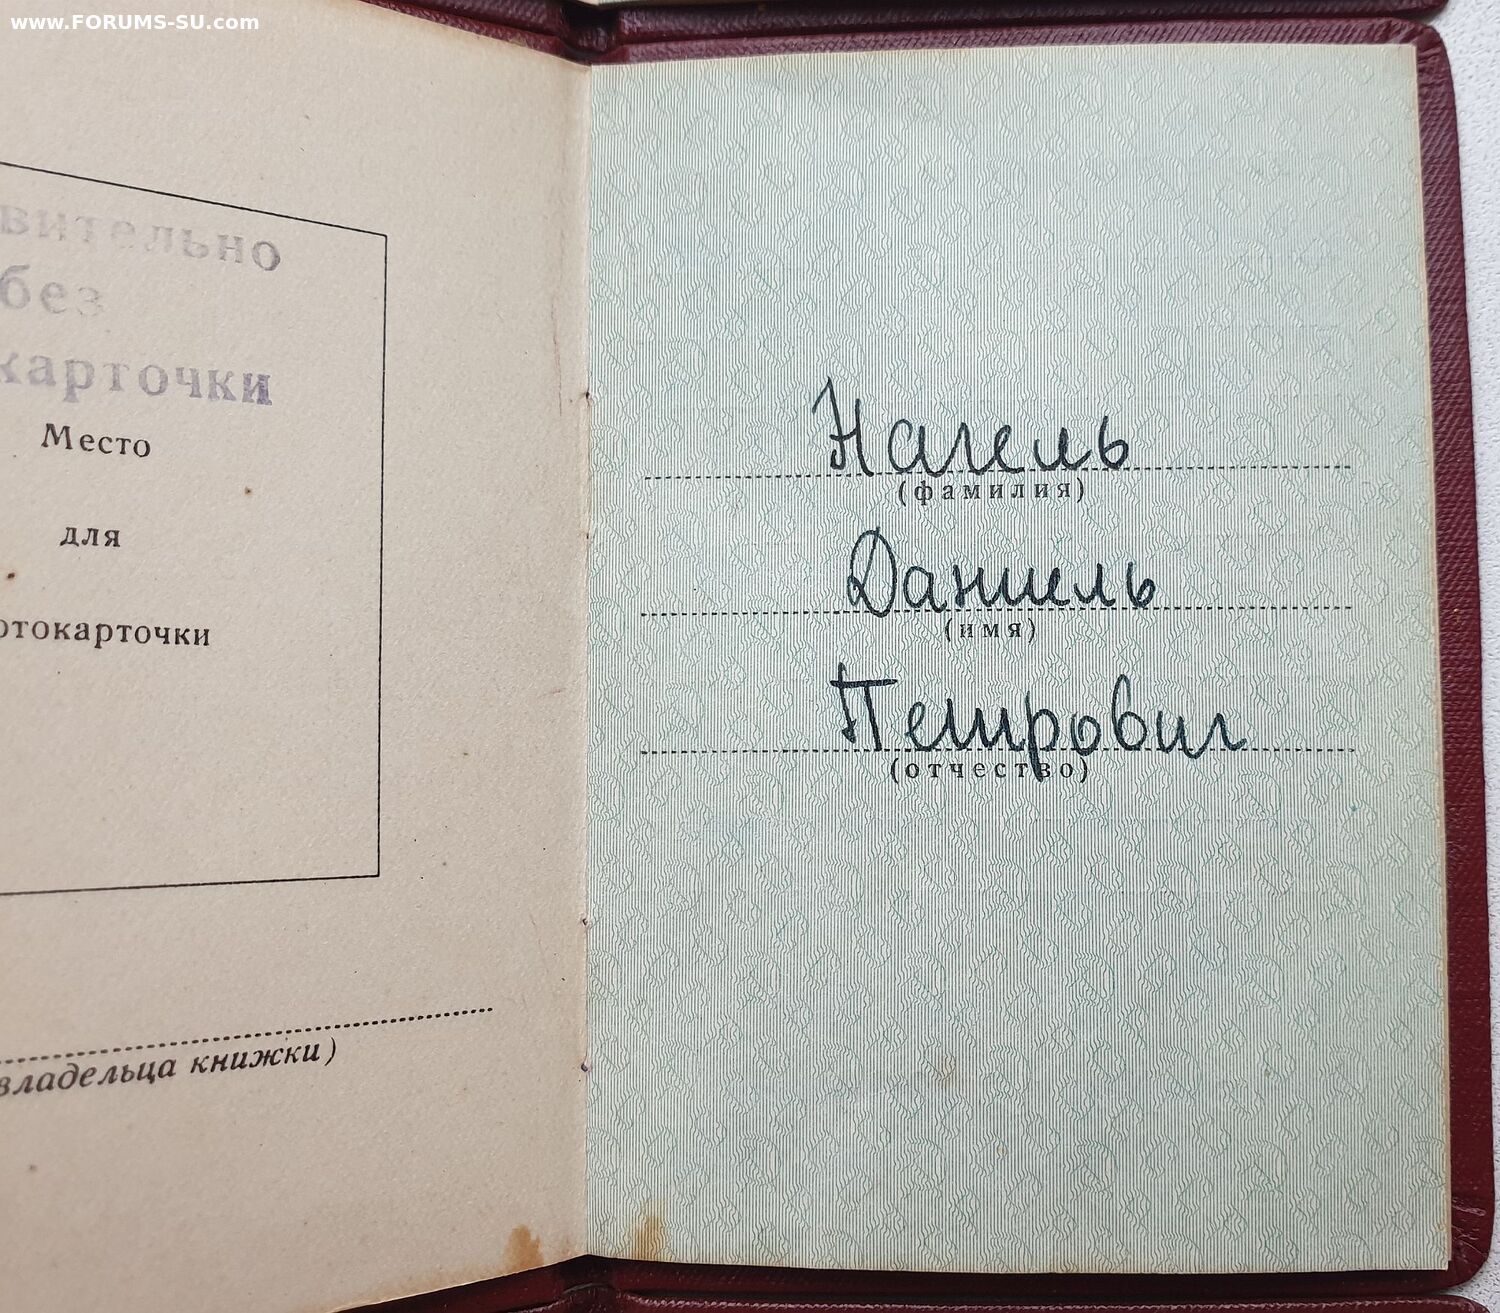 www.FORUMS-SU.com
вительно
без
карточки
Место
для
отокарточки
владельца книжки)
Нагель
(фамилия)
Даниель
(имя)
Петрович
(отчество)